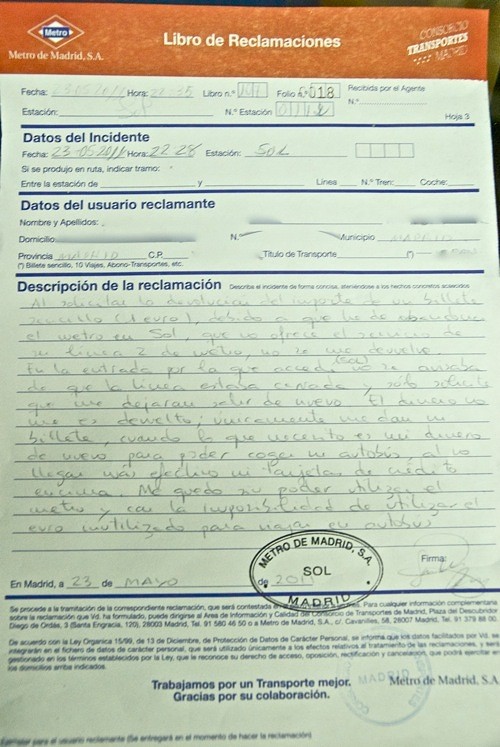 Metro
Metro de Madrid, S.A.
Libro de Reclamaciones
CONSORCIO
TRANSPORTES
MADRID
Fecha: 23-05-2011 Hora: 22:35 Libro n.º Folio n.º 0018 Recibida por el Agente
N.º
Estación: Sol N.º Estación
Hoja 3
Datos del Incidente
Fecha: 23-05-2011 Hora: 22 28 Estación: SOL
Si se produjo en ruta, indicar tramo:
Entre la estación de y Línea N.º Tren: Coche:
Datos del usuario reclamante
Nombre y Apellidos:
Domicilio N.º Municipio MADRID
Provincia MADRID C.P. Título de Transporte (*)
(*) Billete sencillo, 10 Viajes, Abono-Transportes, etc.
Descripción de la reclamación Describa el incidente de forma concisa, ateniéndose a los hechos concretos acaecidos
Al solicitar la devolución del importe de un billete
sencillo (1 euro), debido a que he de abandonar
el metro en Sol, que no ofrece el servicio de
su línea 2 de metro, no se me devuelve.
En la entrada por la que accedí (Sol) no se avisaba
de que la línea estaba cerrada y sólo solicité
que me dejaran salir de nuevo. El dinero no
me es devuelto; únicamente me dan un
billete, cuando lo que necesito es mi dinero
de nuevo para poder coger mi autobús, al no
llegar más efectivo ni tarjetas de crédito
encima. Me quedo sin poder utilizar el
metro y con la imposibilidad de utilizar el
euro inutilizado para viajar en autobús
METRO DE MADRID, S.A.
SOL
MADRID
Firma:
En Madrid, a 23 de MAYO de 2011
Se procede a la tramitación de la correspondiente reclamación, que será contestada Para cualquier información complementaria
sobre la reclamación que Vd. ha formulado, puede dirigirse al Area de Información y Calidad del Consorcio de Transportes de Madrid, Plaza del Descubridor
Diego de Ordás, 3 (Santa Engracia, 120), 28003 Madrid, Tel. 91 580 46 50 o a Metro de Madrid, S.A., c/. Cavanilles, 58, 28007 Madrid, Tel. 91 379 88 00.
De acuerdo con la Ley Organica 15/99, de 13 de Diciembre, de Protección de Datos de Carácter Personal, se informa que los datos facilitados por Vd. se
integrarán en el fichero de datos de carácter personal, que será utilizado únicamente a los efectos relativos al tratamiento de las reclamaciones, y será
gestionado en los términos establecidos por la Ley, que le reconoce su derecho de acceso, oposición, rectificación y cancelación, que podrá ejercitar en
los domicilios arriba indicados.
Trabajamos por un Transporte mejor.
Gracias por su colaboración.
MADRID
Metro de Madrid, S.A.
Ejemplar para el usuario reclamante (Se entregará en el momento de hacer la reclamación)